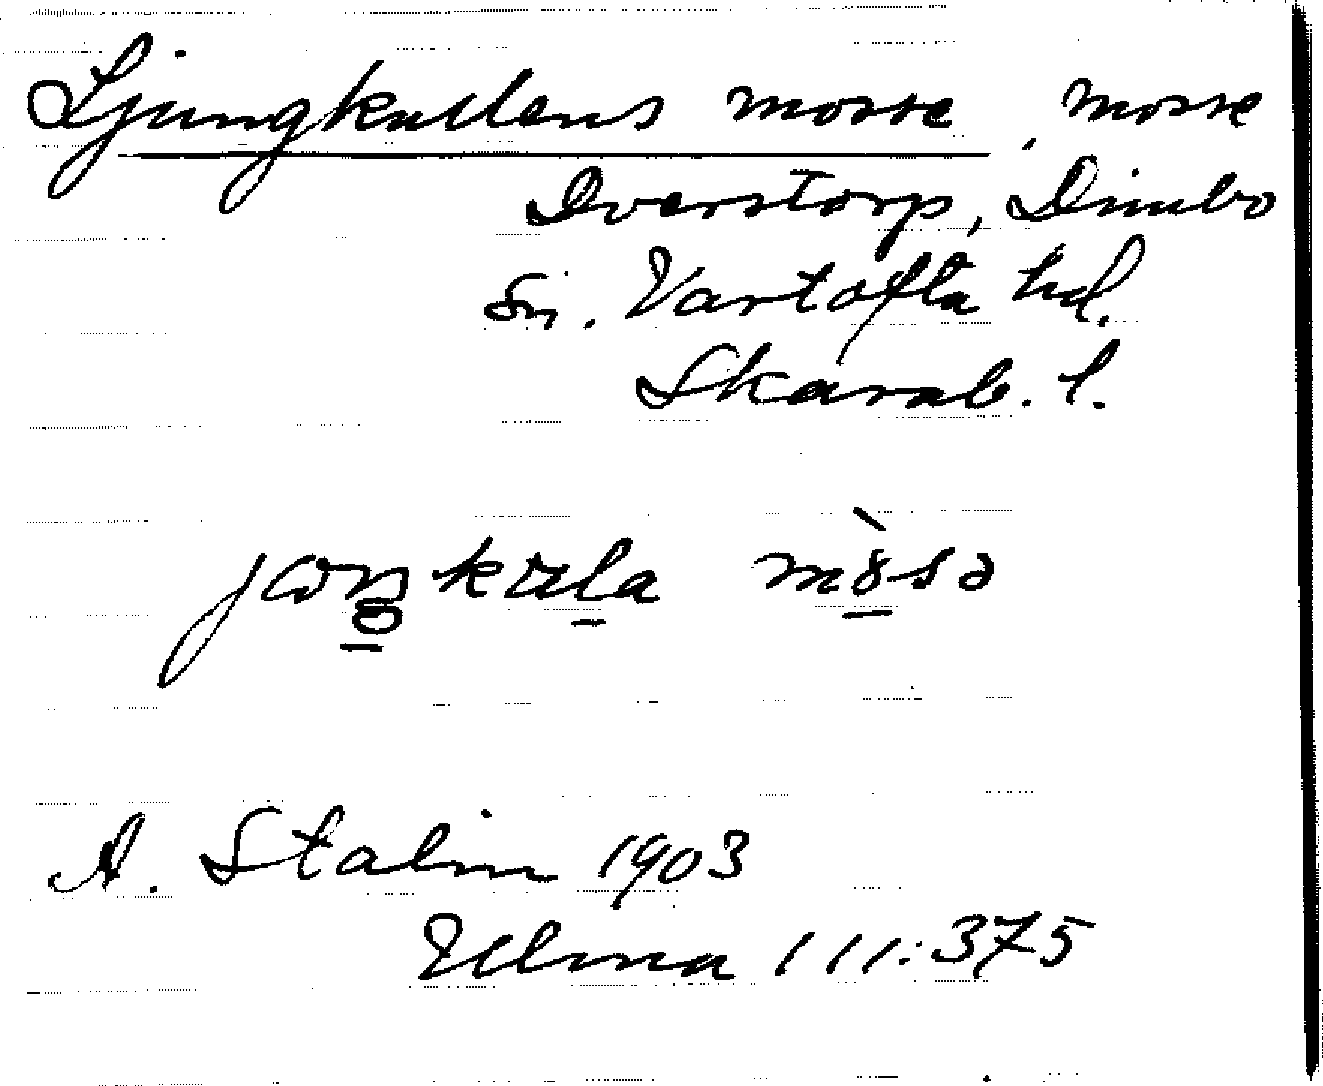 Ljungkullens mosse, mosse
Dverstorp, Dimbo
sn. Vartofta hd.
Skarab. l.
A. Stalin 1903
Ulma 111:375